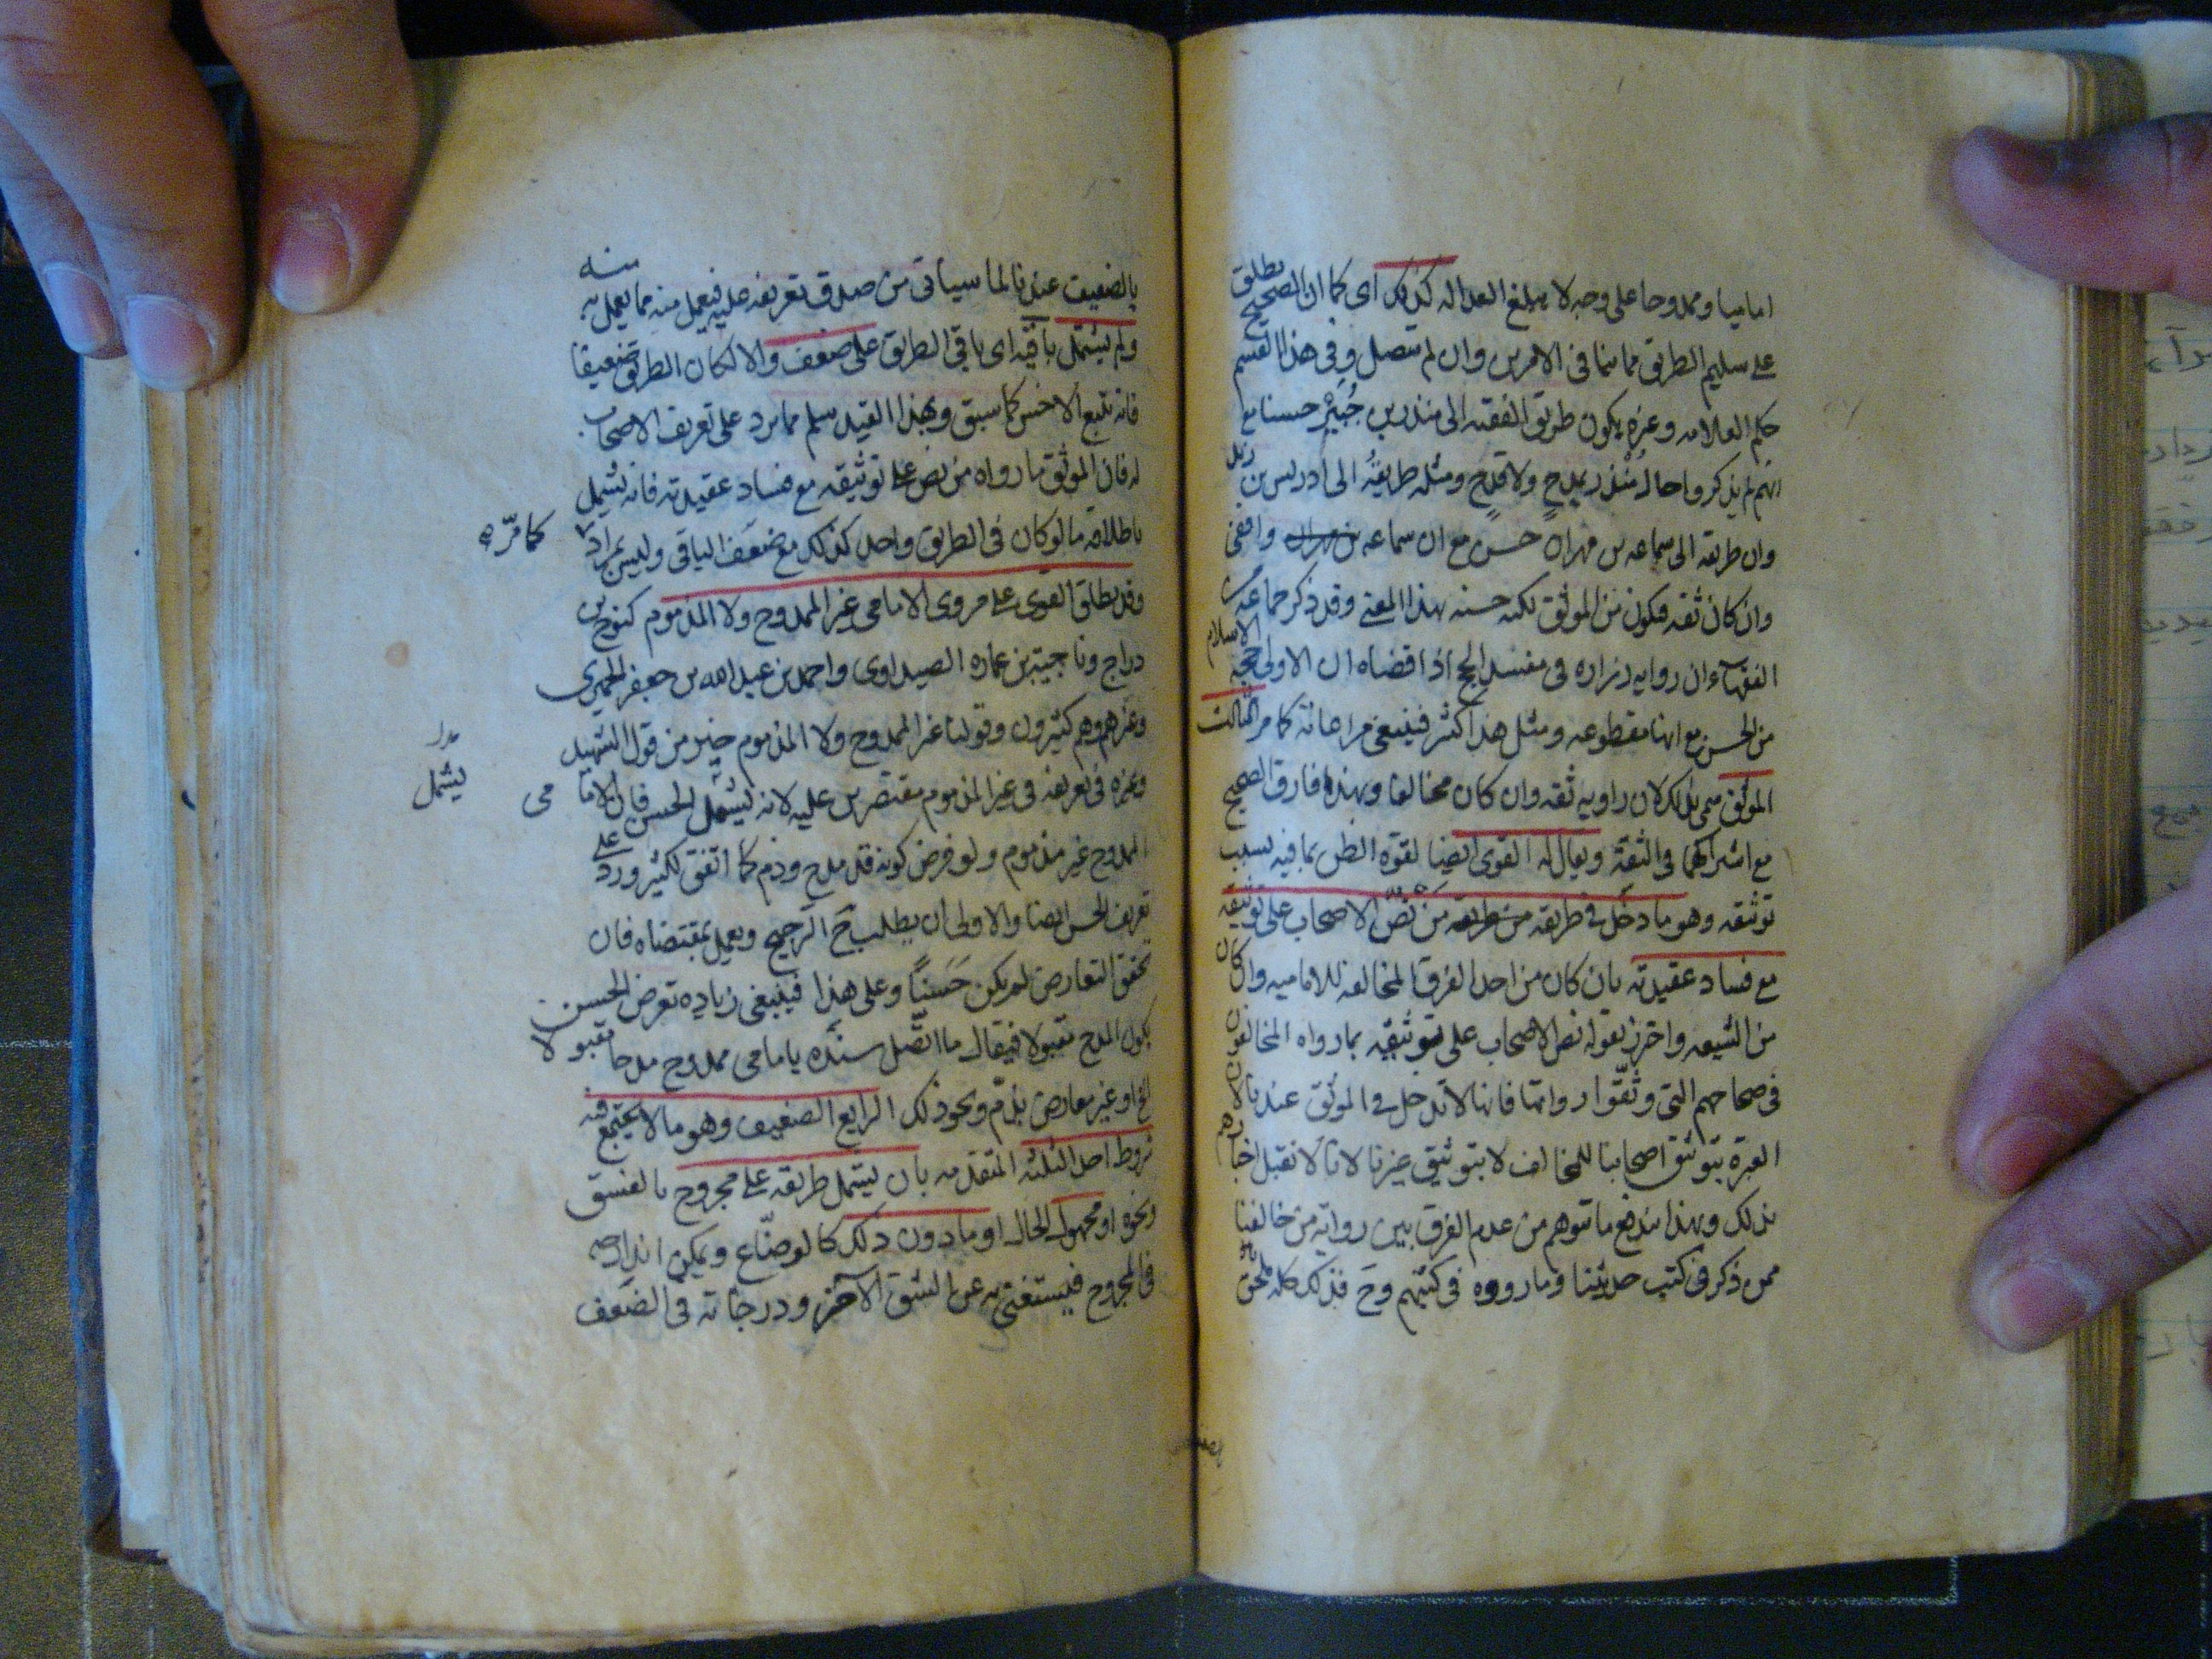 اماميا وممدوحا على وجه لا يبلغ العداله كذلك اى كما ان الصحيح يطلق
على سليم الطريق مما ينافى الامرين وان لم يتصل وفى هذا القسم
حكم العلامه وغيره بكون طريق الفقيه الى منذر بن جُبَيْر حسنا مع
انهم لم يذكروا حال مُنذر بمدحٍ ولا قدحٍ ومثله طريقُه الى ادريس بن زيد
وان طريقه الى سماعه بن مهران حسن مع ان سماعه بن مهران واقفى
وان كان ثقه فيكون من الموثق لكنه حسنه بهذا المعنى وقد ذكر جماعه من
الفقهاء ان روايه زراره فى مفسد الحج اذا قضاه ان الاولى حجه الاسلام
من الحسن مع انها مقطوعه ومثل هذا كثير فينبغى مراعاته كما مر الثالث
الموثق سمى بذلك لان راويه ثقه وان كان مخالفا وبهذا فارق الصحيح
مع اشتراكهما فى الثقة ويقال له القوى ايضا لقوة الظن بما فيه بسبب
توثيقه وهو ما دخل فى طريقه من طريقه مَن نصّ الاصحاب على توثيقه
مع فساد عقيدته بان كان من احد الفرق المخالفه للاماميه وان كان
من الشيعه واحترز بقوله نص الاصحاب على توثيقه بما رواه المخالفون
فى صحاحهم التى وثّقوا رواتها فانها لا تدخل فى الموثق عندنا لان
العبرة بتوثيق اصحابنا للمخالف لا بتوثيق غيرنا لانا لا نقبل اخبارهم
بذلك وبهذا يندفع ما يتوهم من عدم الفرق بين رواية من خالفنا
ممن ذكر فى كتب حديثنا وما رووه فى كتبهم وحَ فذلك كله ملحق
بالضعيف عندنا لما سيأتى من صدق تعريفه عليه فيعمل منه بما يعمل به منه
ولم يشتمل باقيه اى باقى الطريق على ضعف والا لكان الطريق ضعيفا
فانه يتبع الاخس كما سبق وبهذا القيد سلم مما يرد على تعريف الاصحاب
له فان الموثق ما رواه من نص على توثيقه مع فساد عقيدته فانه يشمل
باطلاقه ما لو كان فى الطريق واحد كذلك مع ضعف الباقى وليس بمراد
كما مرّ
وقد يطلق القوى على مروى الامامى غير الممدوح ولا المذموم كنوح بن
دراج وناجية بن عماره الصيداوى واحمد بن عبد الله بن جعفر الحميرى
وغيرهم وهم كثيرون وقولنا غير الممدوح ولا المذموم خير من قول الشهيد
وغيره فى تعريفه فى غير المذموم مقتصرين عليه لانه يشمل الحسن فان الامامى
يشمل
الممدوح غير مذموم ولو فرض كونه قد مدح وذم كما اتفق لكثير ورد على
تعريف الحسن ايضا والاولى ان يطلب حَ الترجيح ويعمل بمقتضاه فان
تحقق التعارض لم يكن حَسَناً وعلى هذا فينبغى زياده تعرض الحسن
بكون المدح مقبولا فيقال ما اتصّل سنده بامامى ممدوح مدحا مقبولا
الخ او غير معارض بذم ونحو ذلك الرابع الضعيف وهو ما لا يجتمع فيه
شروط احد الثلثه المتقدمه بان يشتمل طريقه على مجروح بالفسق
ونحوه او مجهول الحال او ما دون ذلك كالوضّاع ويمكن اندراجه
فى المجروح فيستغنى به عن الشق الآخر ودرجاته فى الضعف